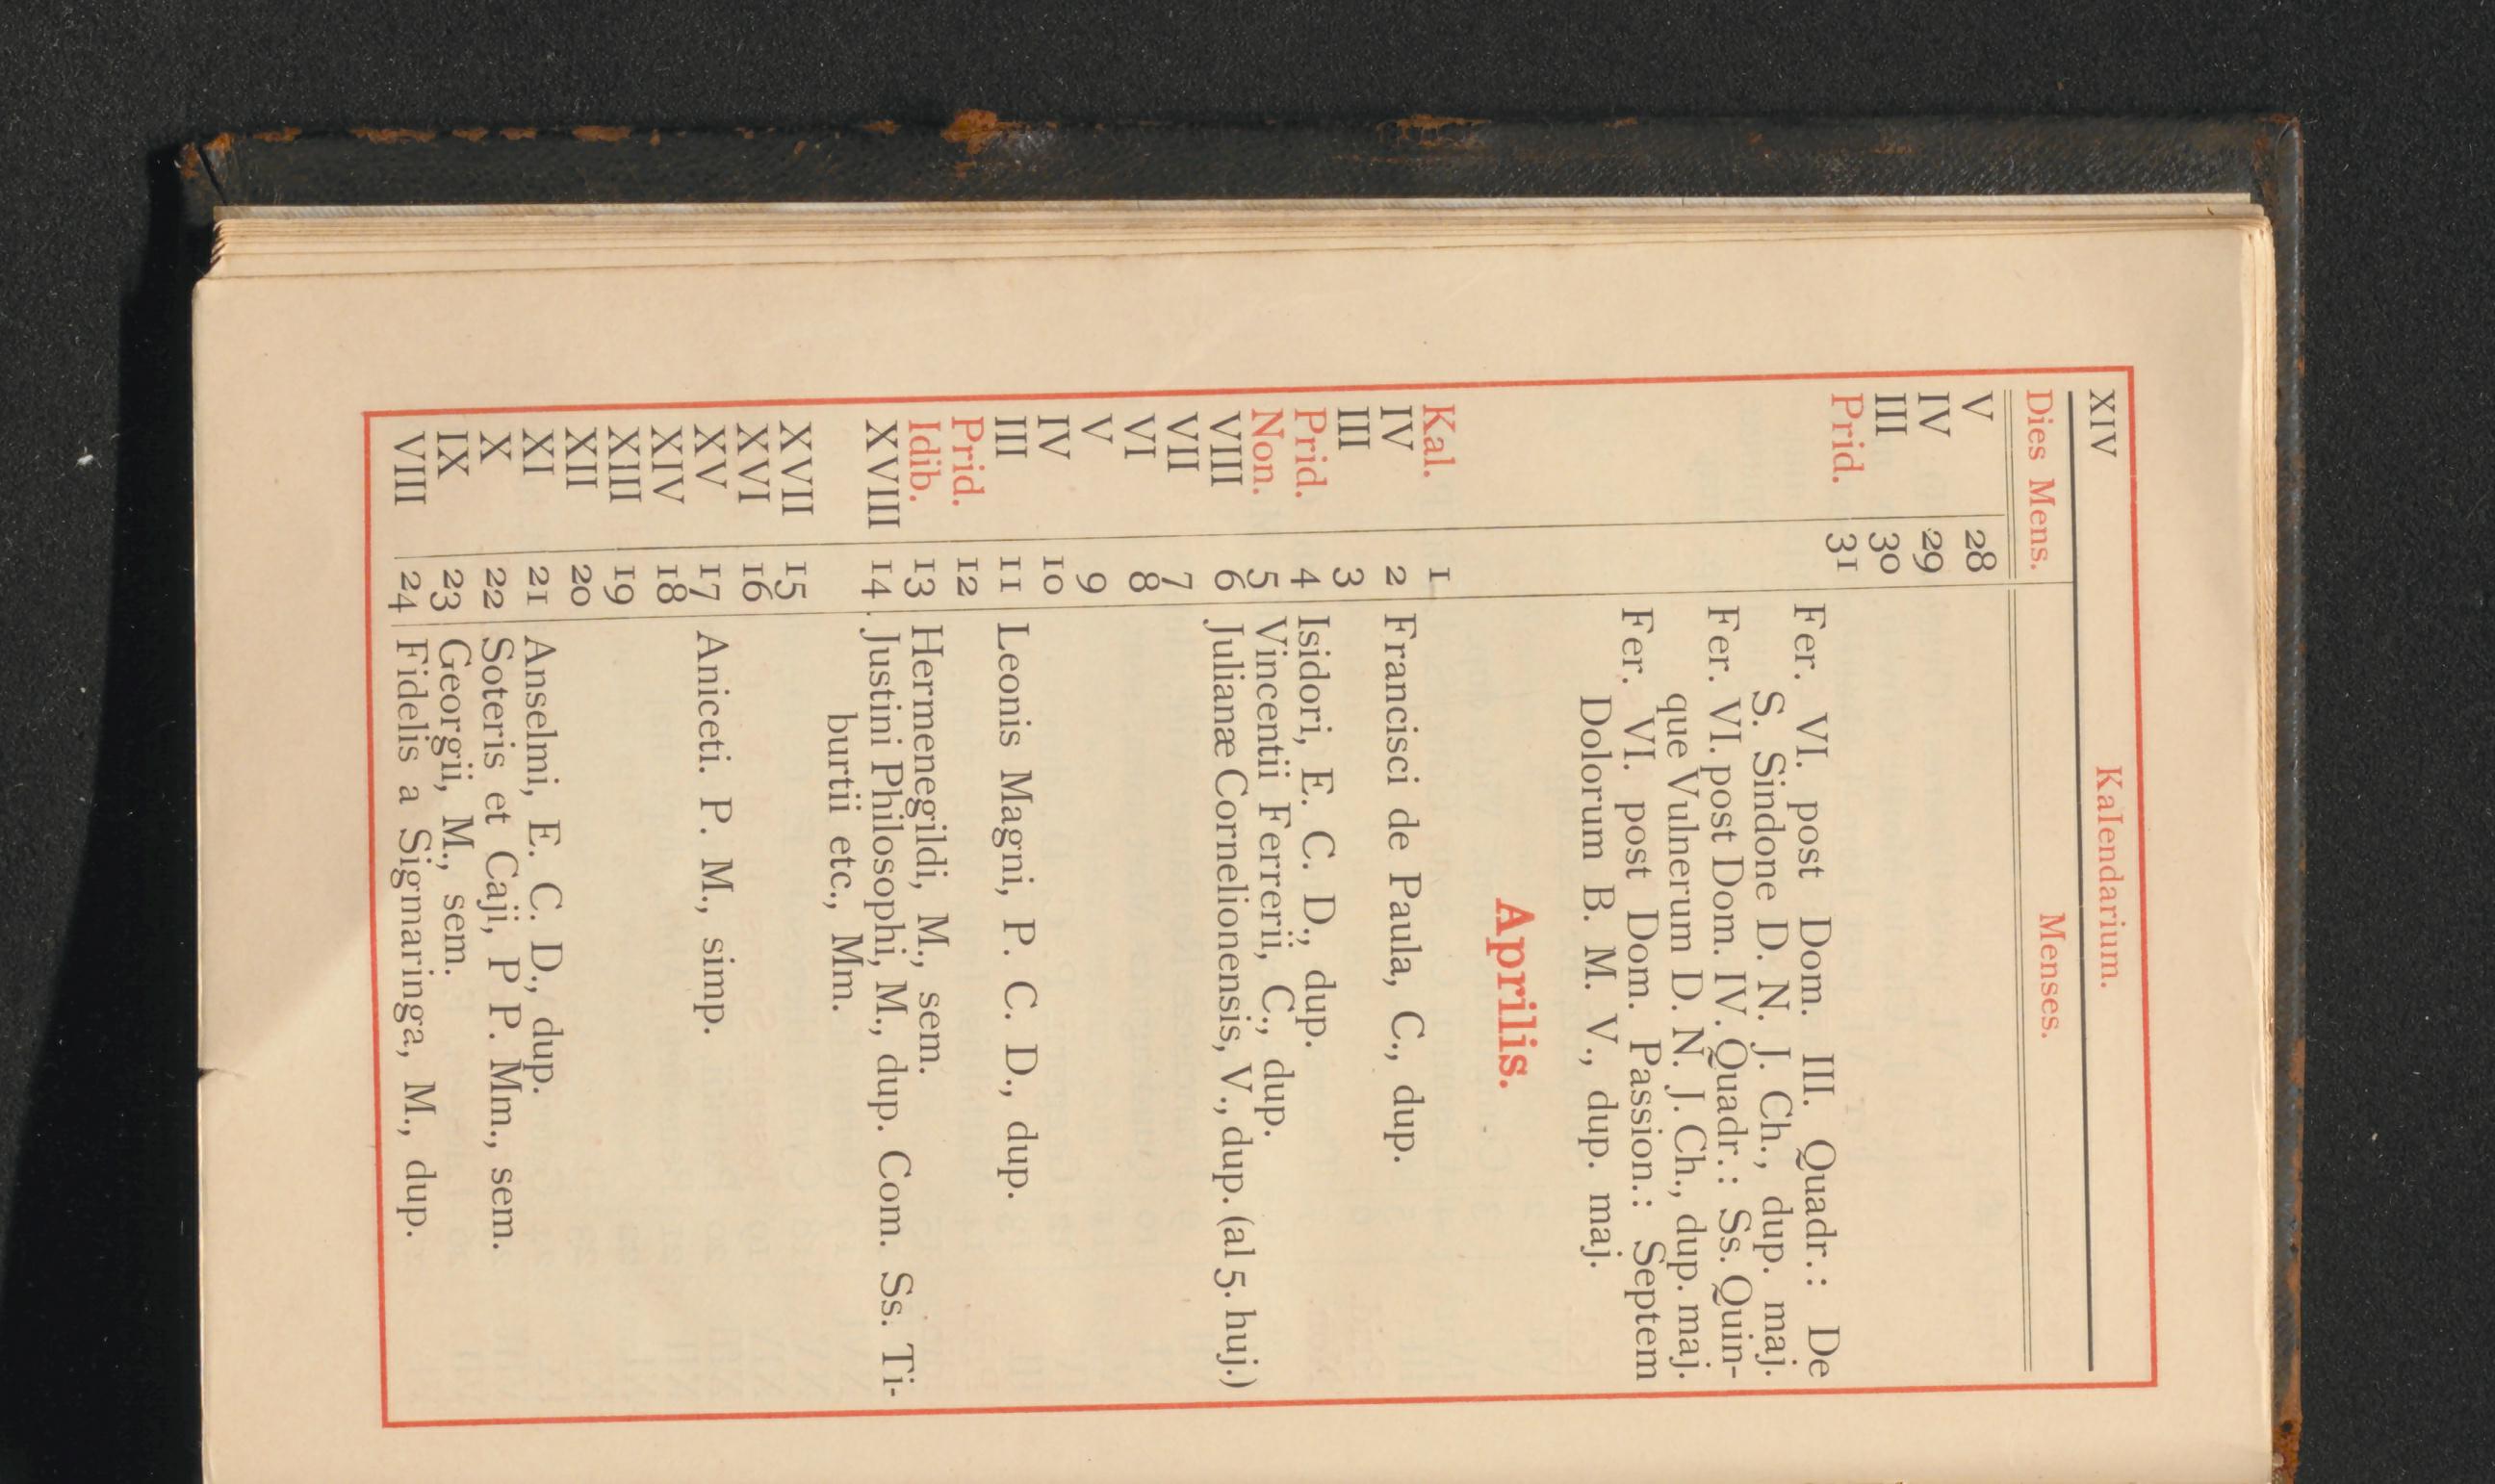 XIV Kalendarium.
Dies Mens. Menses.
V 28
IV 29
III 30
Prid. 31
Fer. VI. post Dom. III. Quadr.: De
S. Sindone D. N. J. Ch., dup. maj.
Fer. VI. post Dom. IV. Quadr.: Ss. Quin-
que Vulnerum D. N. J. Ch., dup. maj.
Fer. VI. post Dom. Passion.: Septem
Dolorum B. M. V., dup. maj.
Aprilis.
Kal. 1
IV 2 Francisci de Paula, C., dup.
III 3
Prid. 4 Isidori, E. C. D., dup.
Non. 5 Vincentii Ferrerii, C., dup.
VIII 6 Julianæ Cornelionensis, V., dup. (al 5. huj.)
VII 7
VI 8
V 9
IV 10
III 11 Leonis Magni, P. C. D., dup.
Prid. 12
Idib. 13 Hermenegildi, M., sem.
XVIII 14 Justini Philosophi, M., dup. Com. Ss. Ti-
burtii etc., Mm.
XVII 15
XVI 16
XV 17 Aniceti. P. M., simp.
XIV 18
XIII 19
XII 20
XI 21 Anselmi, E. C. D., dup.
X 22 Soteris et Caji, P P. Mm., sem.
IX 23 Georgii, M., sem.
VIII 24 Fidelis a Sigmaringa, M., dup.